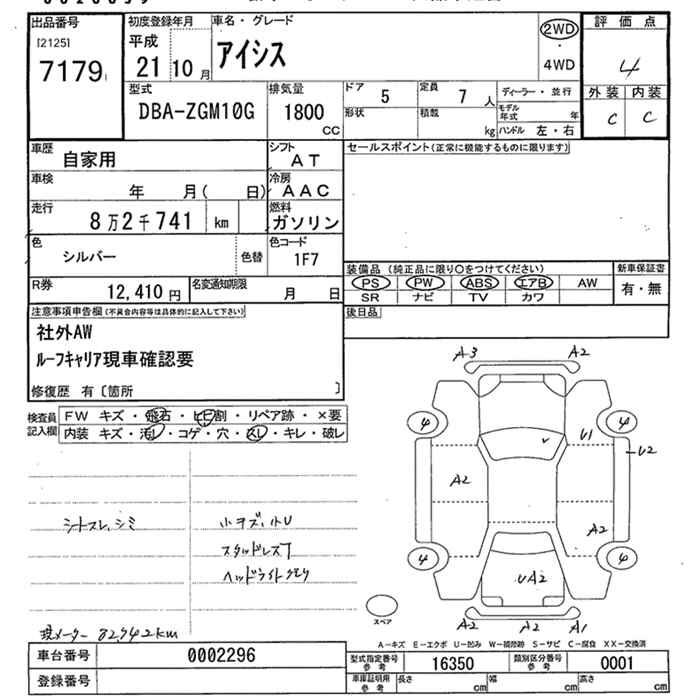 出品番号
[2125]
7179
初度登録年月
平成
21 10 月
車名・グレード
アイシス
2WD
・
4WD
評価点
4
外装 内装
C C
型式
DBA-ZGM10G
排気量
1800
CC
ドア 5
定員 7 人
形状
積載 kg
ディーラー・並行
モデル年式 年
ハンドル 左・右
車歴 自家用
シフト AT
車検 年 月( 日)
冷房 AAC
走行 8万2千741 km
燃料 ガソリン
色 シルバー 色替
色コード 1F7
R券 12,410円
名変通知期限 月 日
セールスポイント(正常に機能するものに限ります)
装備品 (純正品に限り○をつけてください)
PS PW ABS エアB AW
SR ナビ TV カワ
新車保証書
有・無
後日品
注意事項申告欄(不具合内容等は具体的に記入して下さい)
社外AW
ルーフキャリア現車確認要
修復歴 有〔箇所 〕
検査員記入欄
FW キズ・飛石・ヒビ割・リペア跡・×要
内装 キズ・汚レ・コゲ・穴・スレ・キレ・破レ
シートスレ、シミ
小キズ、小U
スタッドレスT
ヘッドライトクモリ
現メーター 82,742km
A3 A2
4 4
U1
U2
A2
A2
4 4
UA2
A2 A2 A1
スペア
A-キズ E-エクボ U-凹み W-補修跡 S-サビ C-腐食 XX-交換済
車台番号 0002296
登録番号
型式指定番号 参考 16350
類別区分番号 参考 0001
車庫証明用 参考
長さ cm
幅 cm
高さ cm